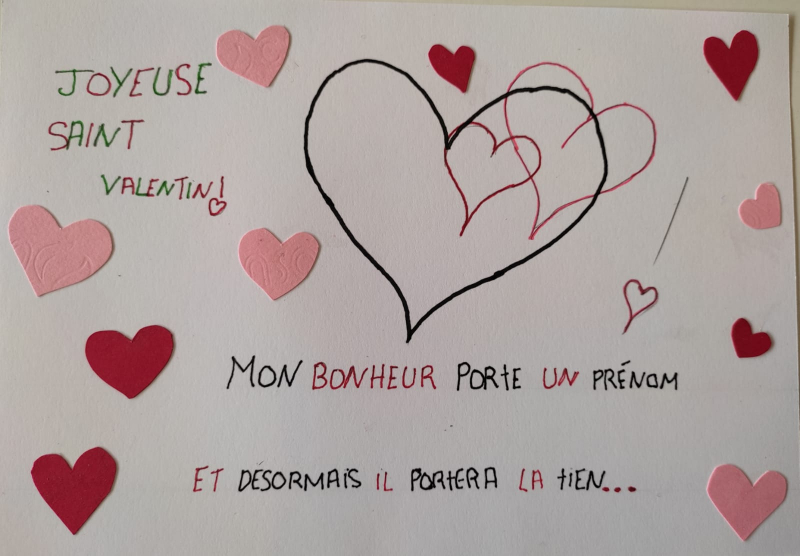 JOYEUSE
SAINT
VALENTIN!
MON BONHEUR PORTE UN PRÉNOM
ET DÉSORMAIS IL PORTERA LA TIEN...